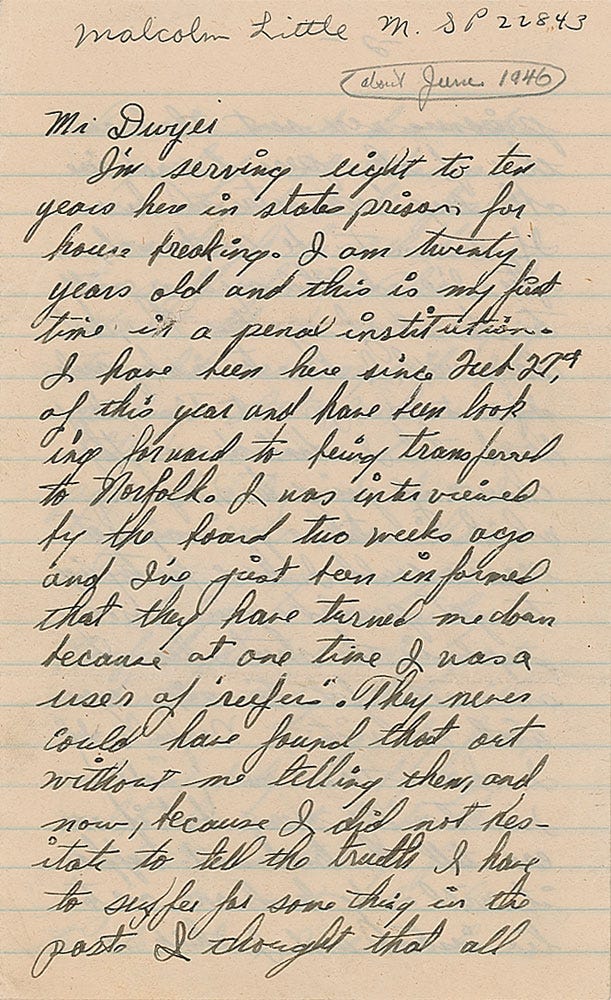 Malcolm Little M. SP 22843
about June 1946
Mr Dwyer
I'm serving eight to ten
years here in state prison for
house breaking. I am twenty
years old and this is my first
time in a penal institution.
I have been here since Feb 27th,
of this year and have been look
ing forward to being transferred
to Norfolk. I was interviewed
by the board two weeks ago
and I've just been informed
that they have turned me down
because at one time I was a
user of "reefers". They never
could have found that out
without me telling them, and
now, because I did not hes-
itate to tell the truth I have
to suffer for some thing in the
past. I thought that all